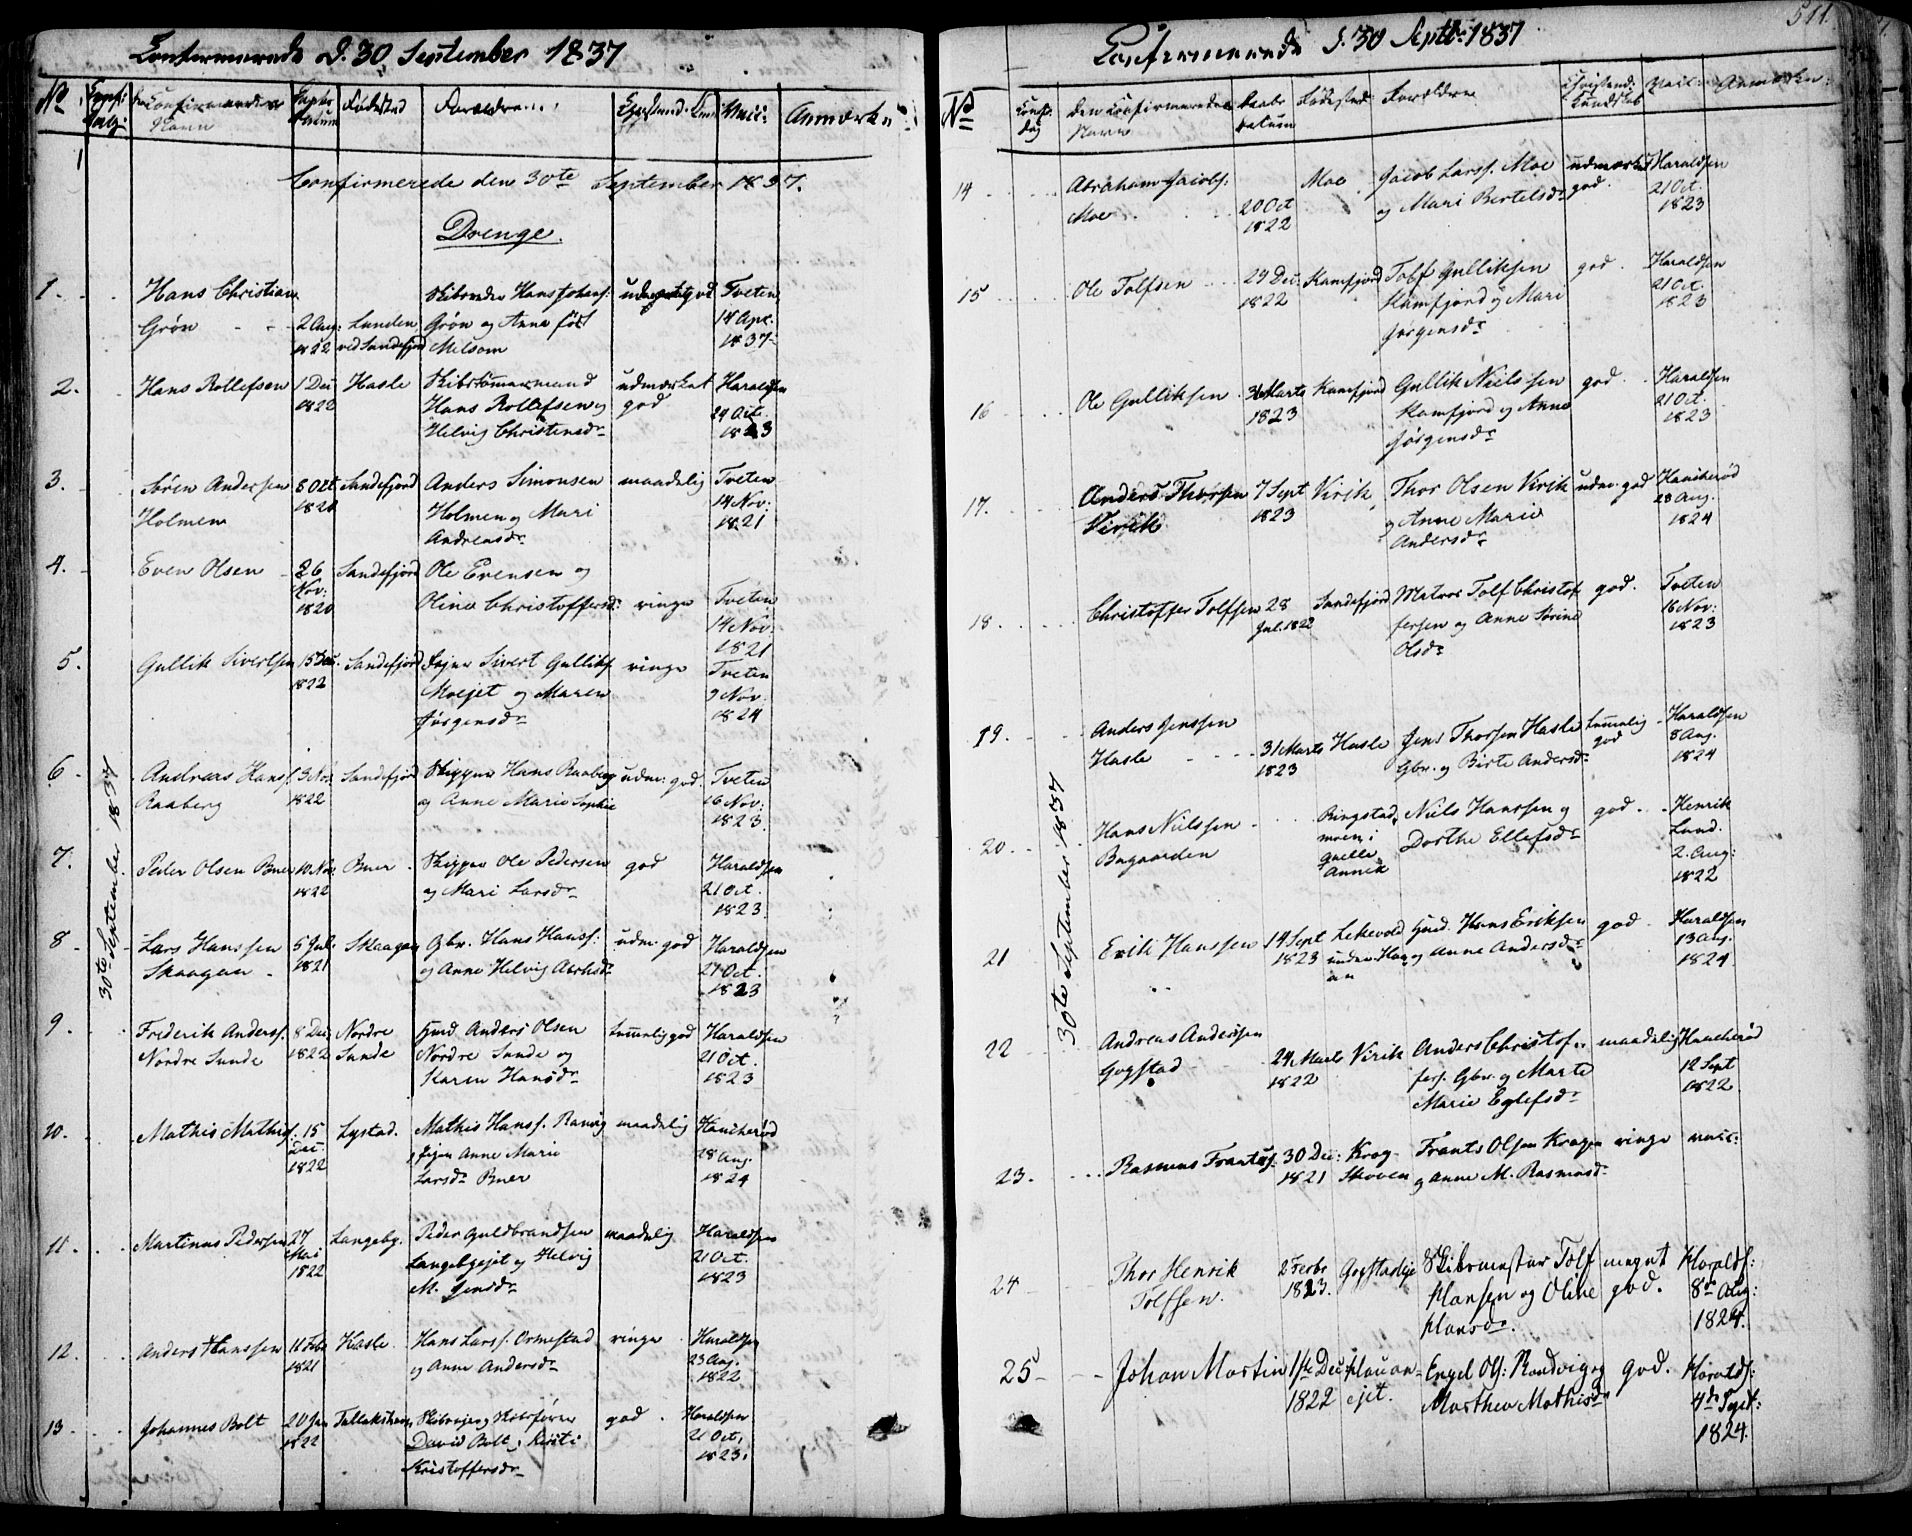 Confirmerede d. 30 September 1837
No Daabs Datum Fødested Forældrene Chrstend. Kund. Vacc: Anmærkn
Confirmerede den 30te September 1837.
Drenge.
30te September 1837
1. Hans Christian Grøn 2 Aug: 1822 Lunden ved Sandefjord Skibreder Hans Johans: Grøn og Anne født Melsom Tveten 18 Apr. 1837
2. Hans Rollefsen 1 Dec 1822 Hasle Skibstømmermand Hans Rollefsen og Helvig Christensdr udmærket god Haraldsen 24 Oct. 1823
3. Søren Andersen Holmen 8 Oct Sandefjord Anders Simonsen Holmen og Mari Andreasdr maadelig Tveten 14 Nov: 1821
4. Even Olsen 26 Nov: 1820 Sandefjord Ole Evensen og Oline Christoffersd: ringe Tveten 14 Nov: 1821
5. Gullik Sivertsen 15 Dec. 1822 Sandefjord Sivert Gulliks. Moejet og Maren Jørgensdr ringe Tveten 9 Nov: 1824
6. Andreas Hans. Raaberg 3 Nov. 1822 Sandefjord Skipper Hans Raaberg og Anne Marie Sophie udm: god Tveten 16 Nov: 1823
7. Peder Olsen Buer 10 Nov. 1822 Buer Skipper Ole Pedersen og Mari Larsdr god Haraldsen 21 Oct. 1823
8 Lars Hanssen Skaagan 5 Jul. 1821 Skaagan Gbr. Hans Hanss: og Anne Helvig udm. god Haraldsen 27 Oct. 1823
9 Frederik Anderss. Nordre Sunde 8 Dec. 1822 Nordre Sunde Huusd. Anders Olsen Nordre Sunde og Karen Hansdr temmelig god Haraldsen 21 Oct. 1823
10. Mathis Mathis. 15 Dec. 1822 Lystad. Mathis Hanss. Ranvig og Anne Marie Larsdr Buer maadelig Haucherød 28 Aug. 1824
11. Martinus Pedersen 27 Mai 1822 Langeby. Peder Guldbrandsen Langebyejet og Helvig M. Jensdr maadelig Haraldsen 21 Oct. 1823
12. Anders Hanssen 11 Febr 1821 Hasle. Hans Larss. Ormestad og Anne Andersdr ringe Haraldsen 23 Aug. 1822
13 Johannes Bolt 20 Jan 1822 David Bolt, Kirsti Kristoffersdr god. Haraldsen 21 Oct. 1823.
Confirmerede d. 30 Septbr: 1837
511.
No Conf: dag Den Confirmeredes Navn Daabs Datum Fødested Forældrene Christend: Kundskab Vacc: Anmærkn:
30te September 1837
14 Abraham Jacobs: Moe. 20 Oct 1822 Moe Jacob Larss. Moe og Mari Bertelsdr udmærket god. Haraldsen 21 Oct. 1823
15 Ole Tolfsen 29 Dec: 1822 Kamfjord Tolf Gulliksen Kamfjord og Mari Jørgensdr god. Haraldsen 21 Oct. 1823
16 Ole Gulliksen 31 Marts 1823 Kamfjord Gullik Nielssen Kamfjord og Anne Jørgensdr god. Haraldsen 21 Oct. 1823
17. Anders Thorsen Virik 7 Sept 1823 Virik, Thor Olsen Virik og Anne Marie Andersdr udm. god Haucherød 28 Aug. 1824
18. Christoffer Tolfsen 28 Jul. 1822 Sandefjord Matros Tolf Christoffersen og Anne Sørine Olsdr god. Tveten 16 Nov: 1823
19. Anders Jenssen Hasle 31 Marts 1823 Hasle Jens Thorsen Hasle Gbr. og Birte Andersdr temmelig god Haraldsen 8 Aug. 1824
20. Hans Nielssen Bugaarden Ringstadmoen i Niels Hanssen og Dorthe Ellefsdr god. Henrik Lund. 2. Aug: 1822
21 Erik Hanssen 14 Sept 1823 Lekevold under Haugan Huusd. Hans Eriksen og Anne Andersdr god Haraldsen 13 Aug. 1824
22 Andreas Anderssen Gogstad 24 Marts 1822 Virik Anders Christoffers. Gbr. og Marte Marie Eglefsdr maadelig Haucherød 12 Sept 1822
23. Rasmus Frantss. 30 Dec: 1821 Krogskoven Frants Olsen Krogen og Anne M. Rasmusdr ringe vacc:
24 Thor Henrik Tolfsen. 2 Febr 1823. Gogstadeje Skibsmester Tolf Hansen og Oline Hansdr. meget god. Haralds: 8de Aug: 1824.
25 Johan Martin 1ste Dec 1822 Hauanejet. Engel Ols: Randvig og Marthea Mathisd god. Haralds: 4de Sept: 1824.